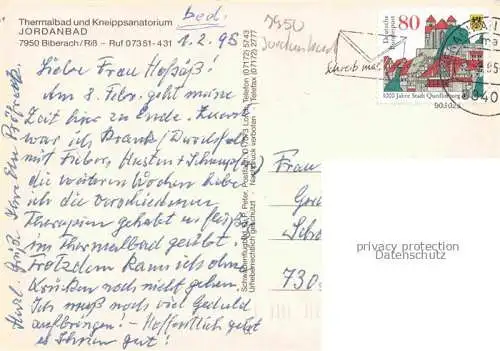 Thermalbad und Kneippsanatorium
JORDANBAD
7950 Biberach/Riß - Ruf 07351-431
bed.
1.2.95
Liebe Frau Hofsäß!
Am 8. Febr. geht meine
Zeit hier zu Ende. Zuerst
war ich krank (
mit Fieber, Husten + Schnupfen)
die weiteren Wochen habe
ich die verschiedenen
Therapien gehabt u. fleißig
im Thermalbad geübt.
Trotzdem kann ich ohne
Krücken noch nicht gehen.
Ich muß noch viel Geduld
aufbringen! - Hoffentlich geht
es Ihnen gut!
Herzl. Grüße Ihre
Schwabenflugbild G.P. Peter, Postfach 1175 Telefon (07172) 5743
Urheberrechtlich geschützt Nachdruck verboten (07172) 5777
7950
Jordanbad
Schreib mal
Deutsche Bundespost
80
1000 Jahre Stadt Quedlinburg
Frau
730
privacy protection
Datenschutz